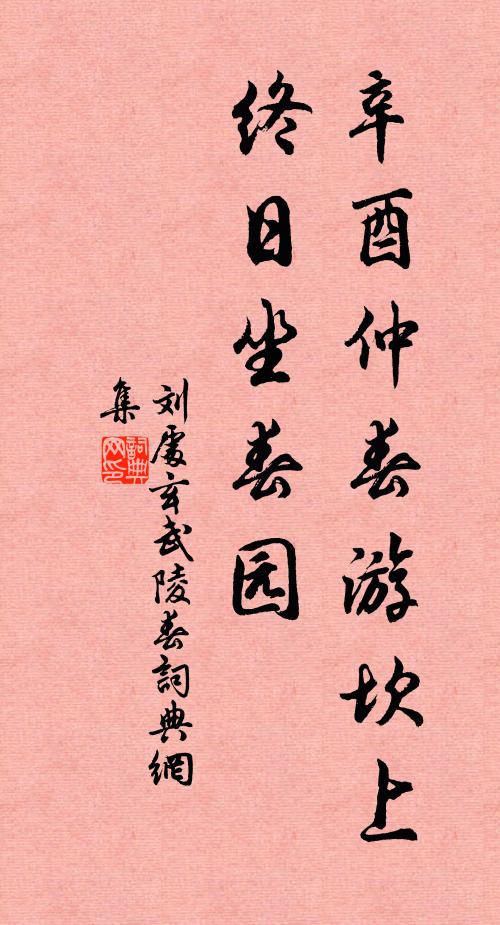 辛酉仲春游坎上
终日坐春园
刘處玄武陵春詞典網
集
詞典网印